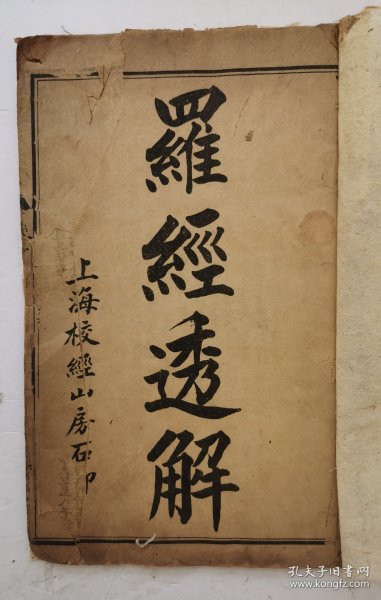 羅經透解
上海校經山房石印
孔夫子旧书网
www.kongfz.com